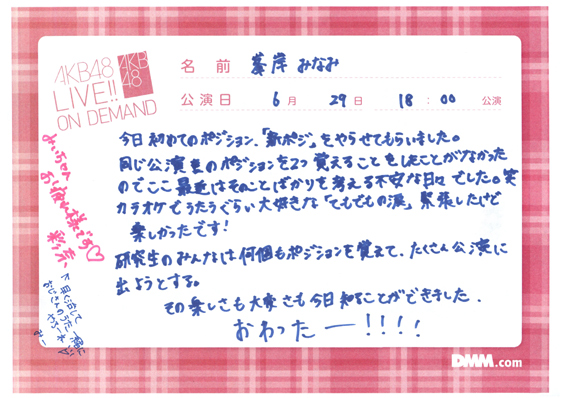 AKB48
LIVE!!
ON DEMAND
AKB
48
名 前 峯岸 みなみ
公演日 6月 29日 18:00 公演
今日初めてのポジション、「新ポジ」をやらせてもらいました。
同じ公演のポジションを2つ覚えることをしたことがなかった
のでここ最近はそのことばかりを考える不安な日々でした。笑
カラオケでうたうぐらい大好きな「てもでもの涙」緊張したけど
楽しかったです!
研究生のみんなは何個もポジションを覚えて、たくさん公演に
出ようとする。
その楽しさも大変さも今日知ることができました.
おわったー!!!!
みいちゃん
お疲れ様です♡
早く治して
おじさんのうた一緒に
やろーね
みー
DMM.com